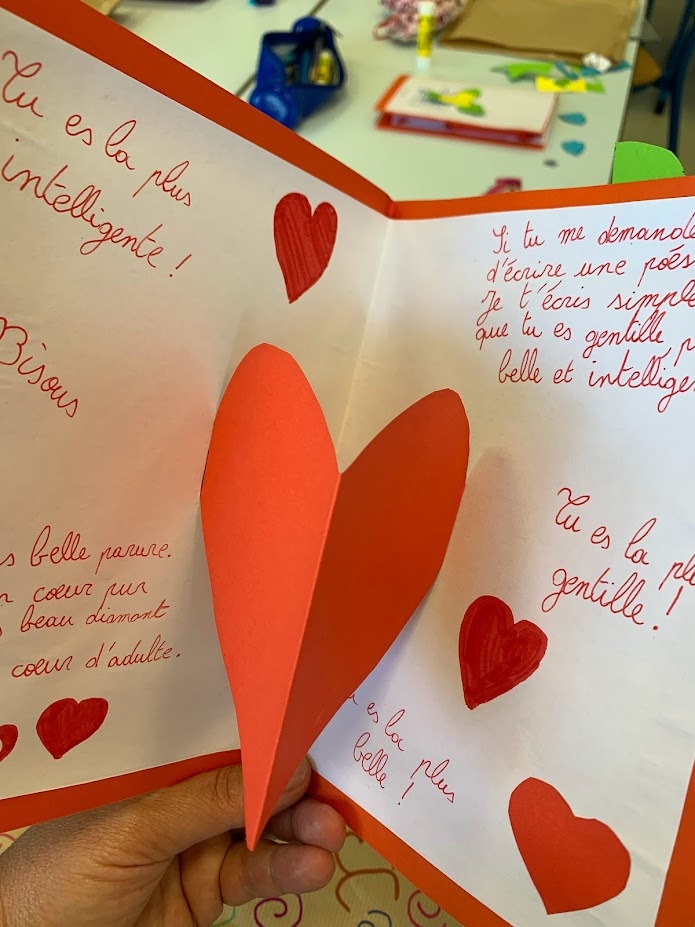 Tu es la plus
intelligente !
Bisous
belle parure.
cœur pur
beau diamant
cœur d'adulte.
Si tu me
d'écrire une
Je t'écris
que tu es gentille,
belle et
Tu es la
gentille !
es la plus
belle !